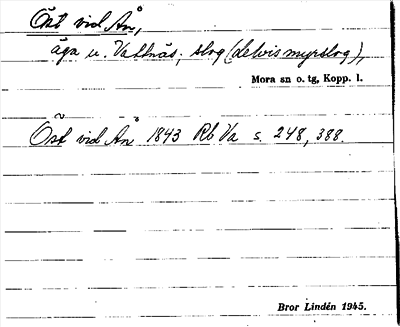 Öst vid Ån,
äga u. Vattnäs, slog (delvis myrslog),
Mora sn o. tg, Kopp. l.
Öst vid Ån 1843 Rb Va s. 248, 388.
Bror Lindén 1945.